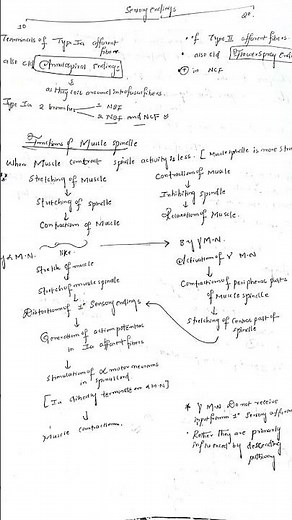 Sensory endings
1°
2°
Terminals of Type Ia afferent fibers
of Type II afferent fibers.
also cld Annulospiral Endings
also cld Flower spray Endi
in NCF
as they coil around intrafusal fibers.
Type Ia 2 branches
1 NBF
2 NBF and NCF
Functions of Muscle spindle
When Muscle contract spindle activity is less. [Muscle spindle is more
Stretching of Muscle
Contraction of Muscle
Stretching of spindle
Inhibiting spindle
Contraction of Muscle
Relaxation of Muscle.
α M.N.
like
By γ M.N.
Stretch of muscle
Activation of γ M.N
Stretch of muscle spindle
Contraction of peripheral parts of Muscle spindle
Distortion of 1° Sensory endings
Stretching of Central part of spindle
Generation of action potentials in Ia afferent fibers
stimulation of α motor neurons in spinal cord
[Ia directly terminate on α M.N]
Muscle contraction.
* γ M.N. Do not receive input from 1° sensory afferents
• Rather they are primarily influenced by descending pathway